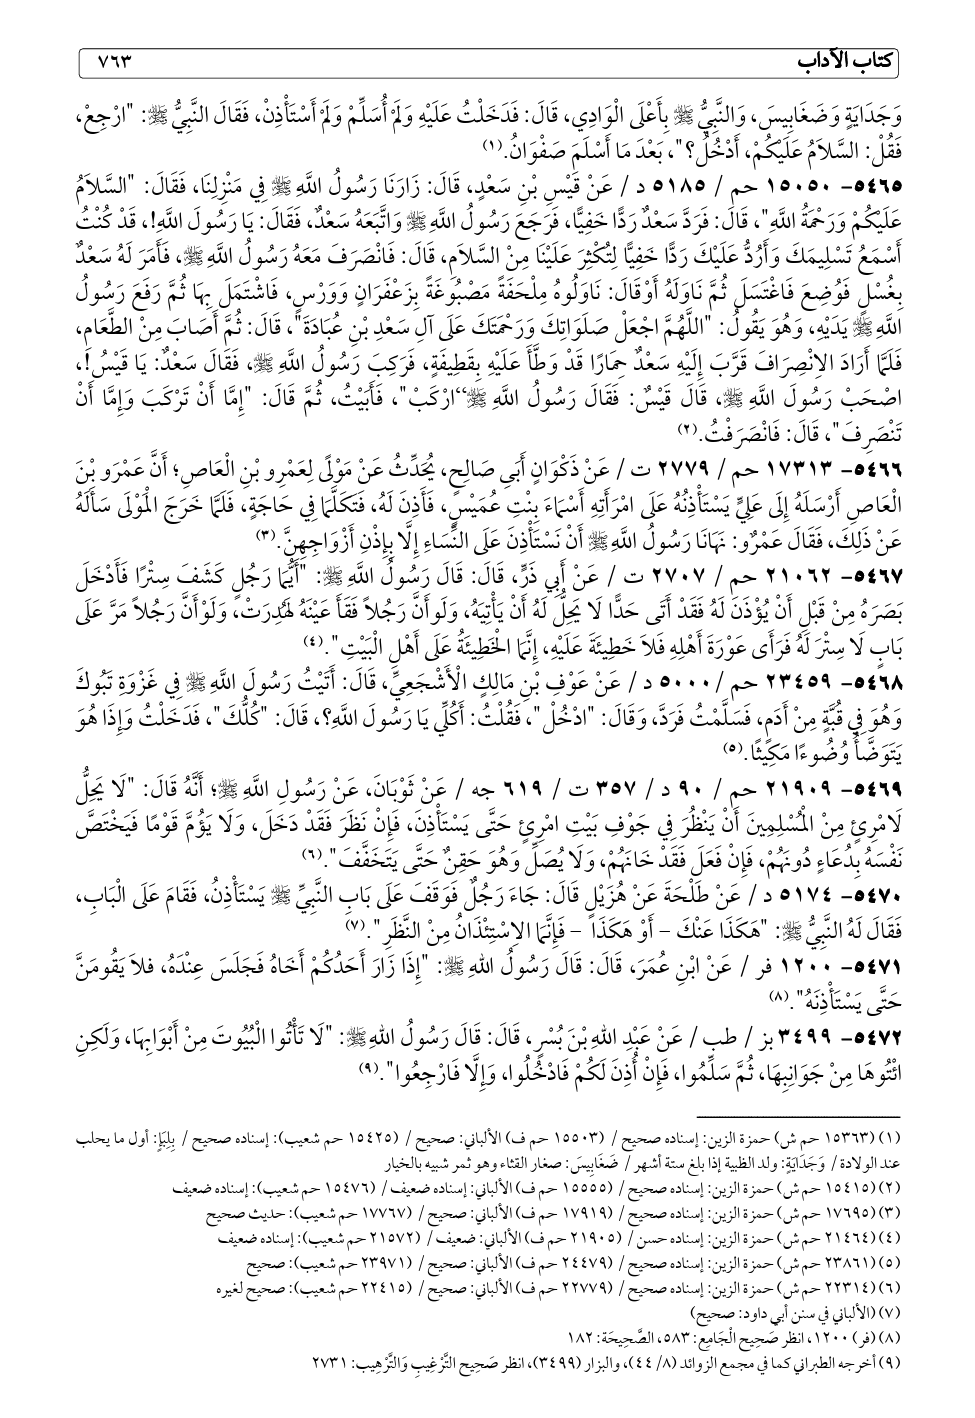 كتاب الآداب ٧٦٣
وَجَدَايَةٍ وَضَغَابِيسَ، وَالنَّبِيُّ ﷺ بِأَعْلَى الْوَادِي، قَالَ: فَدَخَلْتُ عَلَيْهِ وَلَمْ أُسَلِّمْ وَلَمْ أَسْتَأْذِنْ، فَقَالَ النَّبِيُّ ﷺ: "ارْجِعْ،
فَقُلْ: السَّلاَمُ عَلَيْكُمْ، أَدْخُلُ؟"، بَعْدَ مَا أَسْلَمَ صَفْوَانُ.(١)
٥٤٦٥- ١٥٠٥٠ حم / ٥١٨٥ د / عَنْ قَيْسِ بْنِ سَعْدٍ، قَالَ: زَارَنَا رَسُولُ اللَّهِ ﷺ فِي مَنْزِلِنَا، فَقَالَ: "السَّلاَمُ
عَلَيْكُمْ وَرَحْمَةُ اللَّهِ"، قَالَ: فَرَدَّ سَعْدٌ رَدًّا خَفِيًّا، فَرَجَعَ رَسُولُ اللَّهِ ﷺ وَاتَّبَعَهُ سَعْدٌ، فَقَالَ: يَا رَسُولَ اللَّهِ!، قَدْ كُنْتُ
أَسْمَعُ تَسْلِيمَكَ وَأَرُدُّ عَلَيْكَ رَدًّا خَفِيًّا لِتُكْثِرَ عَلَيْنَا مِنْ السَّلاَمِ، قَالَ: فَانْصَرَفَ مَعَهُ رَسُولُ اللَّهِ ﷺ، فَأَمَرَ لَهُ سَعْدٌ
بِغُسْلٍ فَوُضِعَ فَاغْتَسَلَ ثُمَّ نَاوَلَهُ أَوْقَالَ: نَاوَلُوهُ مِلْحَفَةً مَصْبُوغَةً بِزَعْفَرَانٍ وَوَرْسٍ، فَاشْتَمَلَ بِهَا ثُمَّ رَفَعَ رَسُولُ
اللَّهِ ﷺ يَدَيْهِ، وَهُوَ يَقُولُ: "اللَّهُمَّ اجْعَلْ صَلَوَاتِكَ وَرَحْمَتَكَ عَلَى آلِ سَعْدِ بْنِ عُبَادَةَ"، قَالَ: ثُمَّ أَصَابَ مِنْ الطَّعَامِ،
فَلَمَّا أَرَادَ الاِنْصِرَافَ قَرَّبَ إِلَيْهِ سَعْدٌ حِمَارًا قَدْ وَطَّأَ عَلَيْهِ بِقَطِيفَةٍ، فَرَكِبَ رَسُولُ اللَّهِ ﷺ، فَقَالَ سَعْدٌ: يَا قَيْسُ!،
اصْحَبْ رَسُولَ اللَّهِ ﷺ، قَالَ قَيْسٌ: فَقَالَ رَسُولُ اللَّهِ ﷺ“ارْكَبْ"، فَأَبَيْتُ، ثُمَّ قَالَ: "إِمَّا أَنْ تَرْكَبَ وَإِمَّا أَنْ
تَنْصَرِفَ"، قَالَ: فَانْصَرَفْتُ.(٢)
٥٤٦٦- ١٧٣١٣ حم / ٢٧٧٩ ت / عَنْ ذَكْوَانٍ أَبِى صَالِحٍ، يُحَدِّثُ عَنْ مَوْلًى لِعَمْرِو بْنِ الْعَاصِ؛ أَنَّ عَمْرَو بْنَ
الْعَاصِ أَرْسَلَهُ إِلَى عَلِيٍّ يَسْتَأْذِنُهُ عَلَى امْرَأَتِهِ أَسْمَاءَ بِنْتِ عُمَيْسٍ، فَأَذِنَ لَهُ، فَتَكَلَّمَا فِي حَاجَةٍ، فَلَمَّا خَرَجَ الْمَوْلَى سَأَلَهُ
عَنْ ذَلِكَ، فَقَالَ عَمْرٌو: نَهَانَا رَسُولُ اللَّهِ ﷺ أَنْ نَسْتَأْذِنَ عَلَى النِّسَاءِ إِلَّا بِإِذْنِ أَزْوَاجِهِنَّ.(٣)
٥٤٦٧- ٢١٠٦٢ حم / ٢٧٠٧ ت / عَنْ أَبِي ذَرٍّ، قَالَ: قَالَ رَسُولُ اللَّهِ ﷺ: "أَيُّمَا رَجُلٍ كَشَفَ سِتْرًا فَأَدْخَلَ
بَصَرَهُ مِنْ قَبْلِ أَنْ يُؤْذَنَ لَهُ فَقَدْ أَتَى حَدًّا لَا يَحِلُّ لَهُ أَنْ يَأْتِيَهُ، وَلَو أَنَّ رَجُلاً فَقَأَ عَيْنَهُ لَهُدِرَتْ، وَلَوْ أَنَّ رَجُلاً مَرَّ عَلَى
بَابٍ لَا سِتْرَ لَهُ فَرَأَى عَوْرَةَ أَهْلِهِ فَلاَ خَطِيئَةَ عَلَيْهِ، إِنَّمَا الْخَطِيئَةُ عَلَى أَهْلِ الْبَيْتِ".(٤)
٥٤٦٨- ٢٣٤٥٩ حم /٥٠٠٠ د / عَنْ عَوْفِ بْنِ مَالِكٍ الْأَشْجَعِيِّ، قَالَ: أَتَيْتُ رَسُولَ اللَّهِ ﷺ فِي غَزْوَةِ تَبُوكَ
وَهُوَ فِي قُبَّةٍ مِنْ أَدَمٍ، فَسَلَّمْتُ فَرَدَّ، وَقَالَ: "ادْخُلْ"، فَقُلْتُ: أَكُلِّي يَا رَسُولَ اللَّهِ؟، قَالَ: "كُلُّكَ"، فَدَخَلْتُ وَإِذَا هُوَ
يَتَوَضَّأُ وُضُوءًا مَكِيثًا.(٥)
٥٤٦٩- ٢١٩٠٩ حم / ٩٠ د / ٣٥٧ ت / ٦١٩ جه / عَنْ ثَوْبَانَ، عَنْ رَسُولِ اللَّهِ ﷺ؛ أَنَّهُ قَالَ: "لَا يَحِلُّ
لَامْرِئٍ مِنْ الْمُسْلِمِينَ أَنْ يَنْظُرَ فِي جَوْفِ بَيْتِ امْرِئٍ حَتَّى يَسْتَأْذِنَ، فَإِنْ نَظَرَ فَقَدْ دَخَلَ، وَلَا يَؤُمَّ قَوْمًا فَيَخْتَصَّ
نَفْسَهُ بِدُعَاءٍ دُونَهُمْ، فَإِنْ فَعَلَ فَقَدْ خَانَهُمْ، وَلَا يُصَلِّ وَهُوَ حَقِنٌ حَتَّى يَتَخَفَّفَ".(٦)
٥٤٧٠- ٥١٧٤ د / عَنْ طَلْحَةَ عَنْ هُزَيْلٍ قَالَ: جَاءَ رَجُلٌ فَوَقَفَ عَلَى بَابِ النَّبِيِّ ﷺ يَسْتَأْذِنُ، فَقَامَ عَلَى الْبَابِ،
فَقَالَ لَهُ النَّبِيُّ ﷺ: "هَكَذَا عَنْكَ – أَوْ هَكَذَا – فَإِنَّمَا الاِسْتِئْذَانُ مِنْ النَّظَرِ".(٧)
٥٤٧١- ١٢٠٠ فر / عَنْ ابْنِ عُمَرَ، قَالَ: قَالَ رَسُولُ اللهِ ﷺ: "إِذَا زَارَ أَحَدُكُمْ أَخَاهُ فَجَلَسَ عِنْدَهُ، فَلاَ يَقُومَنَّ
حَتَّى يَسْتَأْذِنَهُ".(٨)
٥٤٧٢- ٣٤٩٩ بز / طب / عَنْ عَبْدِ اللهِ بْنَ بُسْرٍ، قَالَ: قَالَ رَسُولُ اللهِ ﷺ: "لَا تَأْتُوا الْبُيُوتَ مِنْ أَبْوَابِهَا، وَلَكِنِ
ائْتُوهَا مِنْ جَوَانِبِهَا، ثُمَّ سَلِّمُوا، فَإِنْ أُذِنَ لَكُمْ فَادْخُلُوا، وَإِلَّا فَارْجِعُوا".(٩)
(١) (١٥٣٦٣ حم ش) حمزة الزين: إسناده صحيح / (١٥٥٠٣ حم ف) الألباني: صحيح / (١٥٤٢٥ حم شعيب): إسناده صحيح / بِلِبَإٍ: أول ما يحلب
عند الولادة / وَجَدَايَةٍ: ولد الظبية إذا بلغ ستة أشهر / ضَغَابِيسَ: صغار القثاء وهو ثمر شبيه بالخيار
(٢) (١٥٤١٥ حم ش) حمزة الزين: إسناده صحيح / (١٥٥٥٥ حم ف) الألباني: إسناده ضعيف / (١٥٤٧٦ حم شعيب): إسناده ضعيف
(٣) (١٧٦٩٥ حم ش) حمزة الزين: إسناده صحيح / (١٧٩١٩ حم ف) الألباني: صحيح / (١٧٧٦٧ حم شعيب): حديث صحيح
(٤) (٢١٤٦٤ حم ش) حمزة الزين: إسناده حسن / (٢١٩٠٥ حم ف) الألباني: ضعيف / (٢١٥٧٢ حم شعيب): إسناده ضعيف
(٥) (٢٣٨٦١ حم ش) حمزة الزين: إسناده صحيح / (٢٤٤٧٩ حم ف) الألباني: صحيح / (٢٣٩٧١ حم شعيب): صحيح
(٦) (٢٢٣١٤ حم ش) حمزة الزين: إسناده صحيح / (٢٢٧٧٩ حم ف) الألباني: صحيح / (٢٢٤١٥ حم شعيب): صحيح لغيره
(٧) (الألباني في سنن أبي داود: صحيح)
(٨) (فر) ١٢٠٠، انظر صَحِيح الْجَامِع: ٥٨٣، الصَّحِيحَة: ١٨٢
(٩) أخرجه الطبراني كما في مجمع الزوائد (٨/ ٤٤)، والبزار (٣٤٩٩)، انظر صَحِيح التَّرْغِيبِ وَالتَّرْهِيب: ٢٧٣١